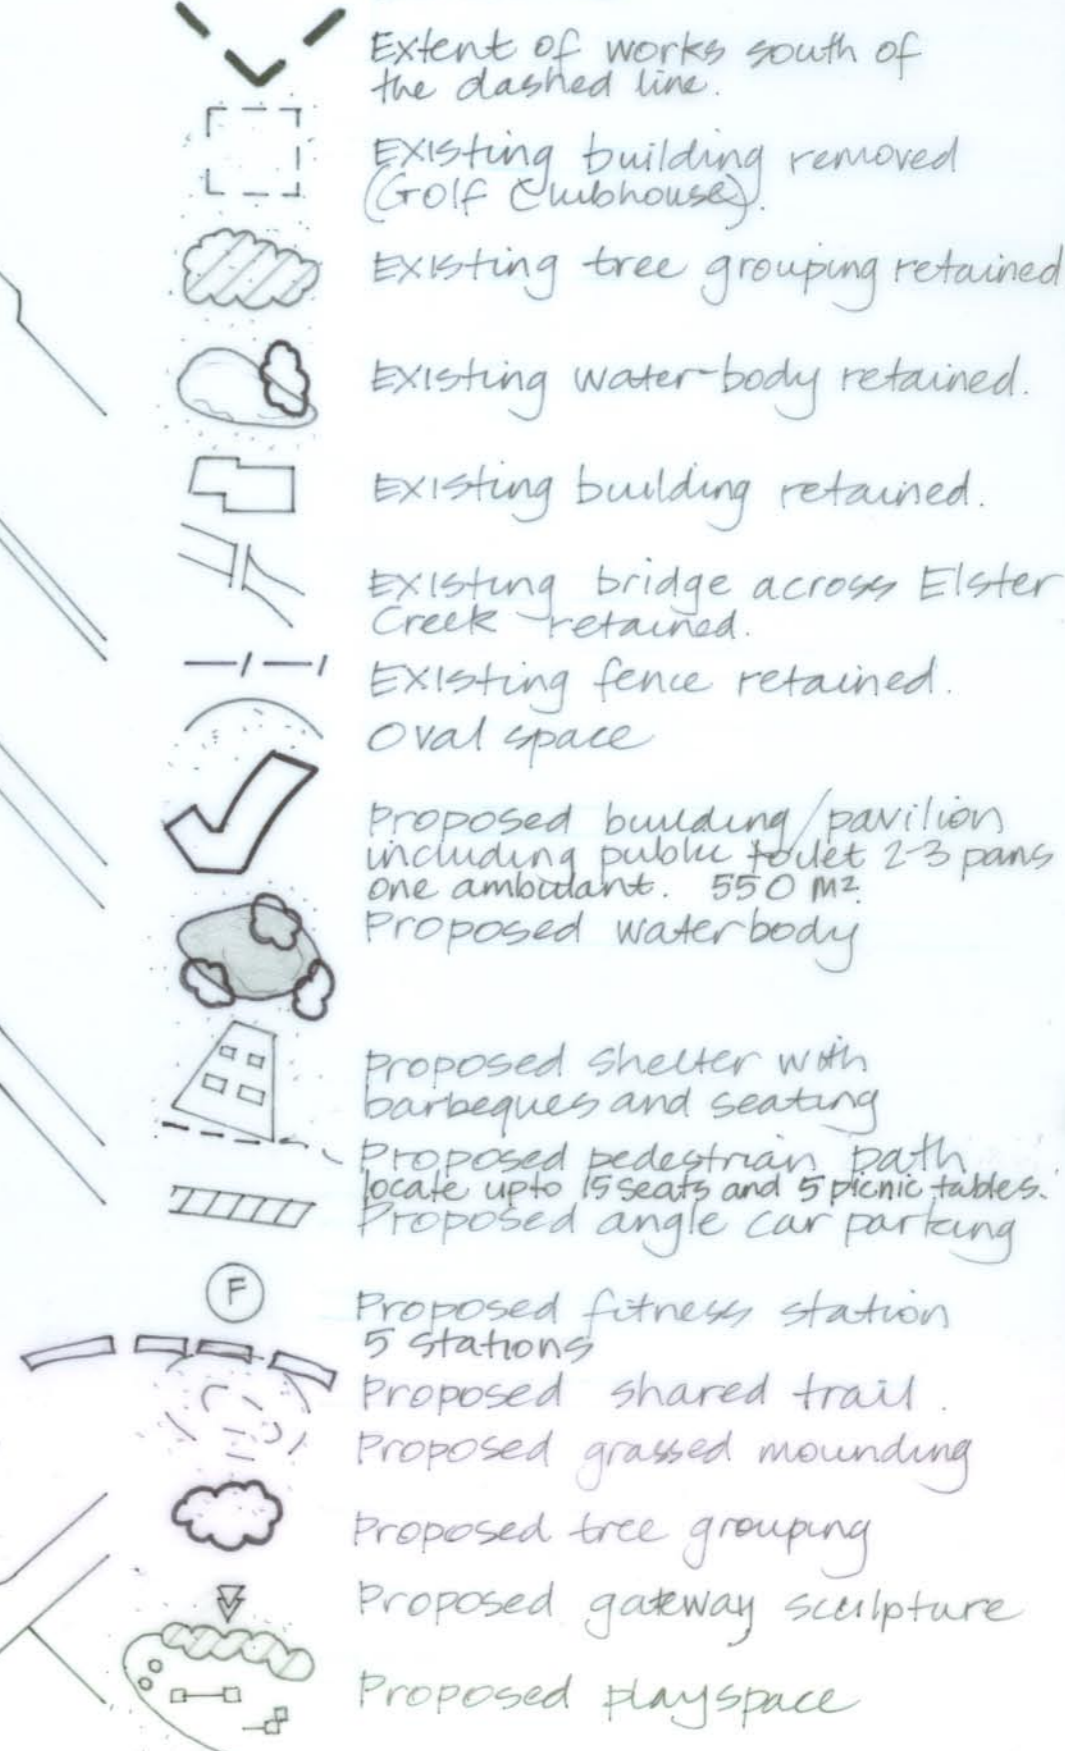 Extent of works south of
the dashed line.
Existing building removed
(Golf Clubhouse).
Existing tree grouping retained
Existing water-body retained.
Existing building retained.
Existing bridge across Elster
Creek retained.
Existing fence retained.
Oval space
Proposed building/pavilion
including public toilet 2-3 pans
one ambulant. 550 m²
Proposed waterbody
Proposed shelter with
barbeques and seating
Proposed pedestrian path
locate upto 15 seats and 5 picnic tables.
Proposed angle car parking
F
Proposed fitness station
5 stations
Proposed shared trail.
Proposed grassed mounding
Proposed tree grouping
Proposed gateway sculpture
Proposed playspace